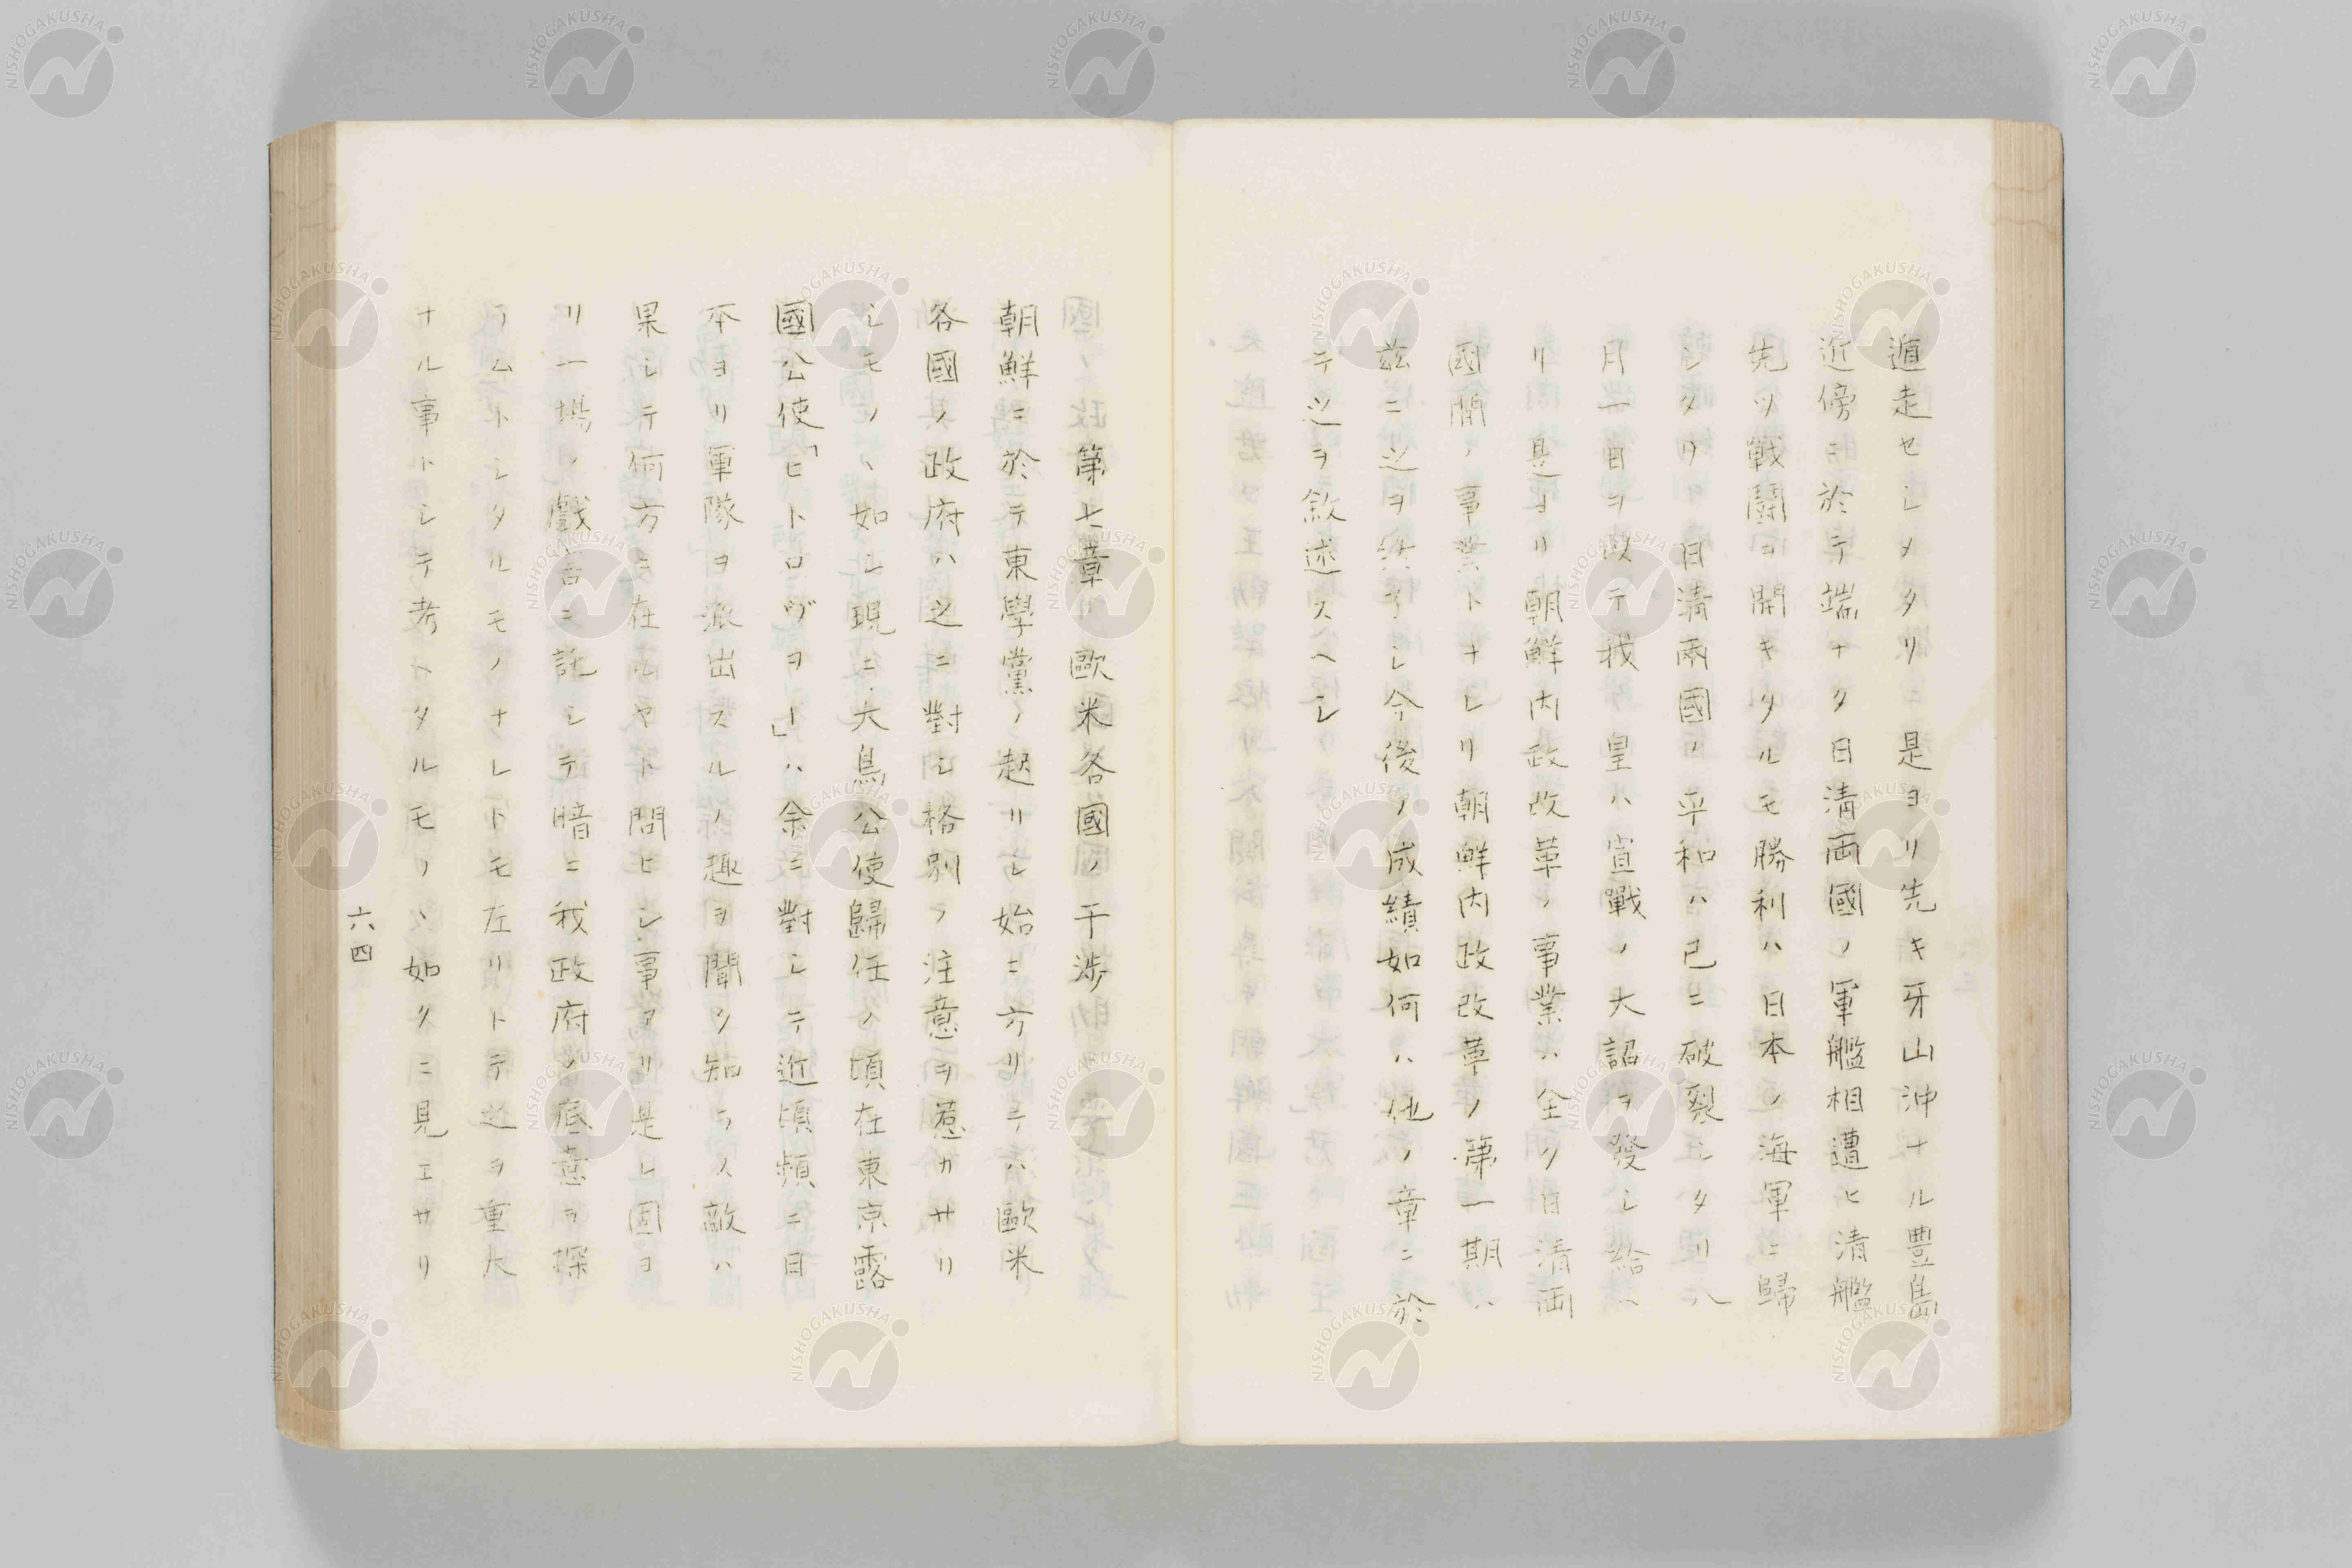 遁走セシメタリ是ヨリ先キ牙山沖ナル豊島
近傍ニ於テ端ナク日清両國ノ軍艦相遭ヒ清艦
先ツ戦闘ヲ開キタルモ勝利ハ日本ノ海軍ニ歸
シタリ日清兩國ノ平和ハ已ニ破裂シタリ八
月一日ヲ以テ我 皇ハ宣戰ノ大詔ヲ發シ給ヘ
リ是ヨリ朝鮮内政改革ノ事業ハ全ク日清両
國間ノ事業トナレリ朝鮮内政改革ノ第一期ハ
茲ニ之ヲ終ヲシ今後ノ成績如何ハ他ノ章ニ於
テ之ヲ敘述スヘシ
第七章 歐米各國ノ干渉
朝鮮ニ於テ東學黨ノ起リシ始ニ方リテハ歐米
各國ノ政府ハ之ニ對シ格別ノ注意ヲ惹カサリ
シモノヽ如シ現ニ大鳥公使歸任ノ頃在東京露
國公使「ヒトロヴヲー」ハ余ニ對シテ近頃頻ニ日
本ヨリ軍隊ヲ派出スルノ趣ヲ聞ク知ラス敵ハ
果シテ何方ニ在ルヤト問ヒシ事アリ是レ固ヨ
リ一場ノ戲言ニ託シテ暗ニ我政府ノ底意ヲ探
ラムトシタルモノナレトモ左リトテ之ヲ重大
ナル事トシテ考ヘタルモノヽ如クニ見エサリ
六四
NISHOGAKUSHA